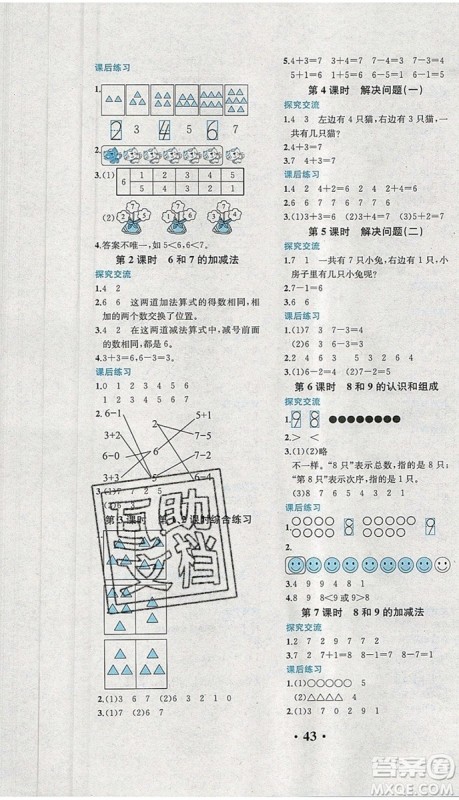 课后练习
1.
2 3 4 5 6 7
2.
3.(1) 6 1 2 3 4 5
5 4 3 2 1
(2)
4.答案不唯一，如5＜6,6＜7。
第2课时 6和7的加减法
探究交流
1.4 2
2.6 6 这两道加法算式的得数相同，相
加的两个数交换了位置。
3.4 2 这两道减法算式中，减号前面
的数相同。
4.3+3=6,6-3=3。
课后练习
1.0 1 2 3 4 5 6
1 2 3 4 5 6 7
2. 6-1 5+1
3+2 7-5
6-4 6-0
3+3 7-2
3.(1)7 7 2 5
第3课时 课时综合练习
2.(1)3 6 7 (2)6 6 7
3.(1)7 (2)6 7
5.4+3=7 3+4=7 7-4=3 7-3=4
5+1=6 1+5=6 6-5=1 6-1=5
第4课时 解决问题(一)
探究交流
1.4 3 左边有4只猫，右边有3只猫，一
共有几只猫？
2.4+3=7
课后练习
1.2 4 2+4=6
2.(1)3 4 7 (2)1 5 6
第5课时 解决问题(二)
探究交流
1.7 1 一共有7只小兔，右边有1只，小
房子里有几只小兔呢？
2.7-1=6
课后练习
1.(1)7 3 7-3=4
(2)6 1 6-1=5
2.(1)6-3=3 (2)7-5=2
第6课时 8和9的认识和组成
探究交流
1. 9 8
2.＞ ＜
3.(1)(2)略
不一样。“8只”表示总数，指的是8只；
“第8只”表示次序，指的是1只。
课后练习
1. 8 9
2.
3.4 9 9 4 8 1
4.9 8 8＜9或9＞8
第7课时 8和9的加减法
探究交流
1.2 7 2 9 7 7 2
2.7 2 7+2=9 7-2=5
课后练习
1.(1)○○○○ 5
(2)△△△△ 4
2.(1)3 7 0 2 9 1
互助文档
• 43 •
答案圈
MXQE.COM